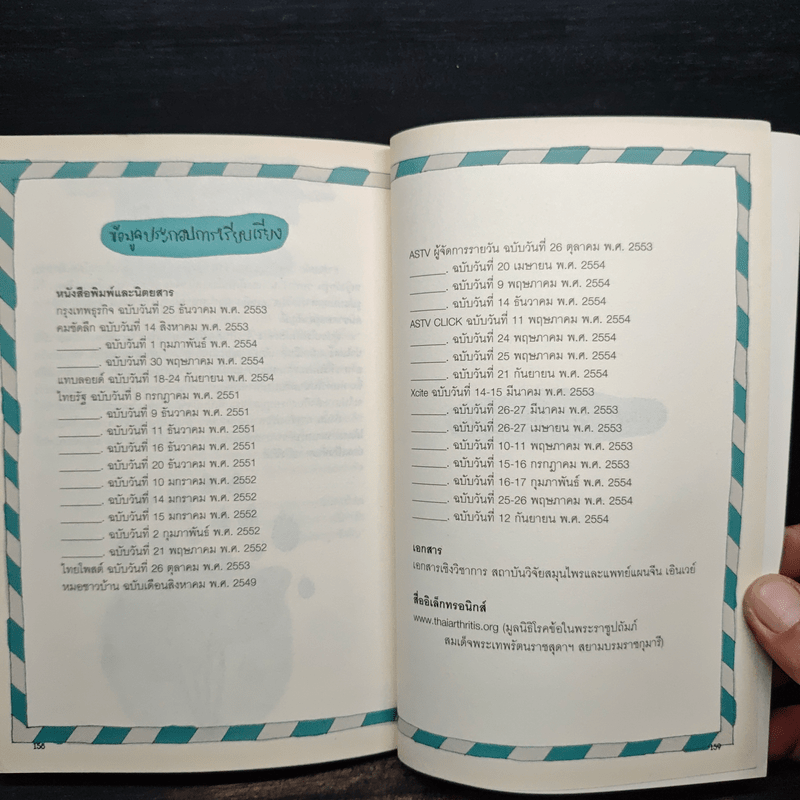 ข้อมูลประกอบการเรียบเรียง
หนังสือพิมพ์และนิตยสาร
กรุงเทพธุรกิจ ฉบับวันที่ 25 ธันวาคม พ.ศ. 2553
คมชัดลึก ฉบับวันที่ 14 สิงหาคม พ.ศ. 2553
________. ฉบับวันที่ 1 กุมภาพันธ์ พ.ศ. 2554
________. ฉบับวันที่ 30 พฤษภาคม พ.ศ. 2554
แทบลอยด์ ฉบับวันที่ 18-24 กันยายน พ.ศ. 2554
ไทยรัฐ ฉบับวันที่ 8 กรกฎาคม พ.ศ. 2551
________. ฉบับวันที่ 9 ธันวาคม พ.ศ. 2551
________. ฉบับวันที่ 11 ธันวาคม พ.ศ. 2551
________. ฉบับวันที่ 16 ธันวาคม พ.ศ. 2551
________. ฉบับวันที่ 20 ธันวาคม พ.ศ. 2551
________. ฉบับวันที่ 10 มกราคม พ.ศ. 2552
________. ฉบับวันที่ 14 มกราคม พ.ศ. 2552
________. ฉบับวันที่ 15 มกราคม พ.ศ. 2552
________. ฉบับวันที่ 2 กุมภาพันธ์ พ.ศ. 2552
________. ฉบับวันที่ 21 พฤษภาคม พ.ศ. 2552
ไทยโพสต์ ฉบับวันที่ 26 ตุลาคม พ.ศ. 2553
หมอชาวบ้าน ฉบับเดือนสิงหาคม พ.ศ. 2549
158
ASTV ผู้จัดการรายวัน ฉบับวันที่ 26 ตุลาคม พ.ศ. 2553
________. ฉบับวันที่ 20 เมษายน พ.ศ. 2554
________. ฉบับวันที่ 9 พฤษภาคม พ.ศ. 2554
________. ฉบับวันที่ 14 ธันวาคม พ.ศ. 2554
ASTV CLICK ฉบับวันที่ 11 พฤษภาคม พ.ศ. 2554
________. ฉบับวันที่ 24 พฤษภาคม พ.ศ. 2554
________. ฉบับวันที่ 25 พฤษภาคม พ.ศ. 2554
________. ฉบับวันที่ 21 กันยายน พ.ศ. 2554
Xcite ฉบับวันที่ 14-15 มีนาคม พ.ศ. 2553
________. ฉบับวันที่ 26-27 มีนาคม พ.ศ. 2553
________. ฉบับวันที่ 26-27 เมษายน พ.ศ. 2553
________. ฉบับวันที่ 10-11 พฤษภาคม พ.ศ. 2553
________. ฉบับวันที่ 15-16 กรกฎาคม พ.ศ. 2553
________. ฉบับวันที่ 16-17 กุมภาพันธ์ พ.ศ. 2554
________. ฉบับวันที่ 25-26 พฤษภาคม พ.ศ. 2554
________. ฉบับวันที่ 12 กันยายน พ.ศ. 2554
เอกสาร
เอกสารเชิงวิชาการ สถาบันวิจัยสมุนไพรและแพทย์แผนจีน เอินเวย์
สื่ออิเล็กทรอนิกส์
www.thaiarthritis.org (มูลนิธิโรคข้อในพระราชูปถัมภ์
สมเด็จพระเทพรัตนราชสุดาฯ สยามบรมราชกุมารี)
159